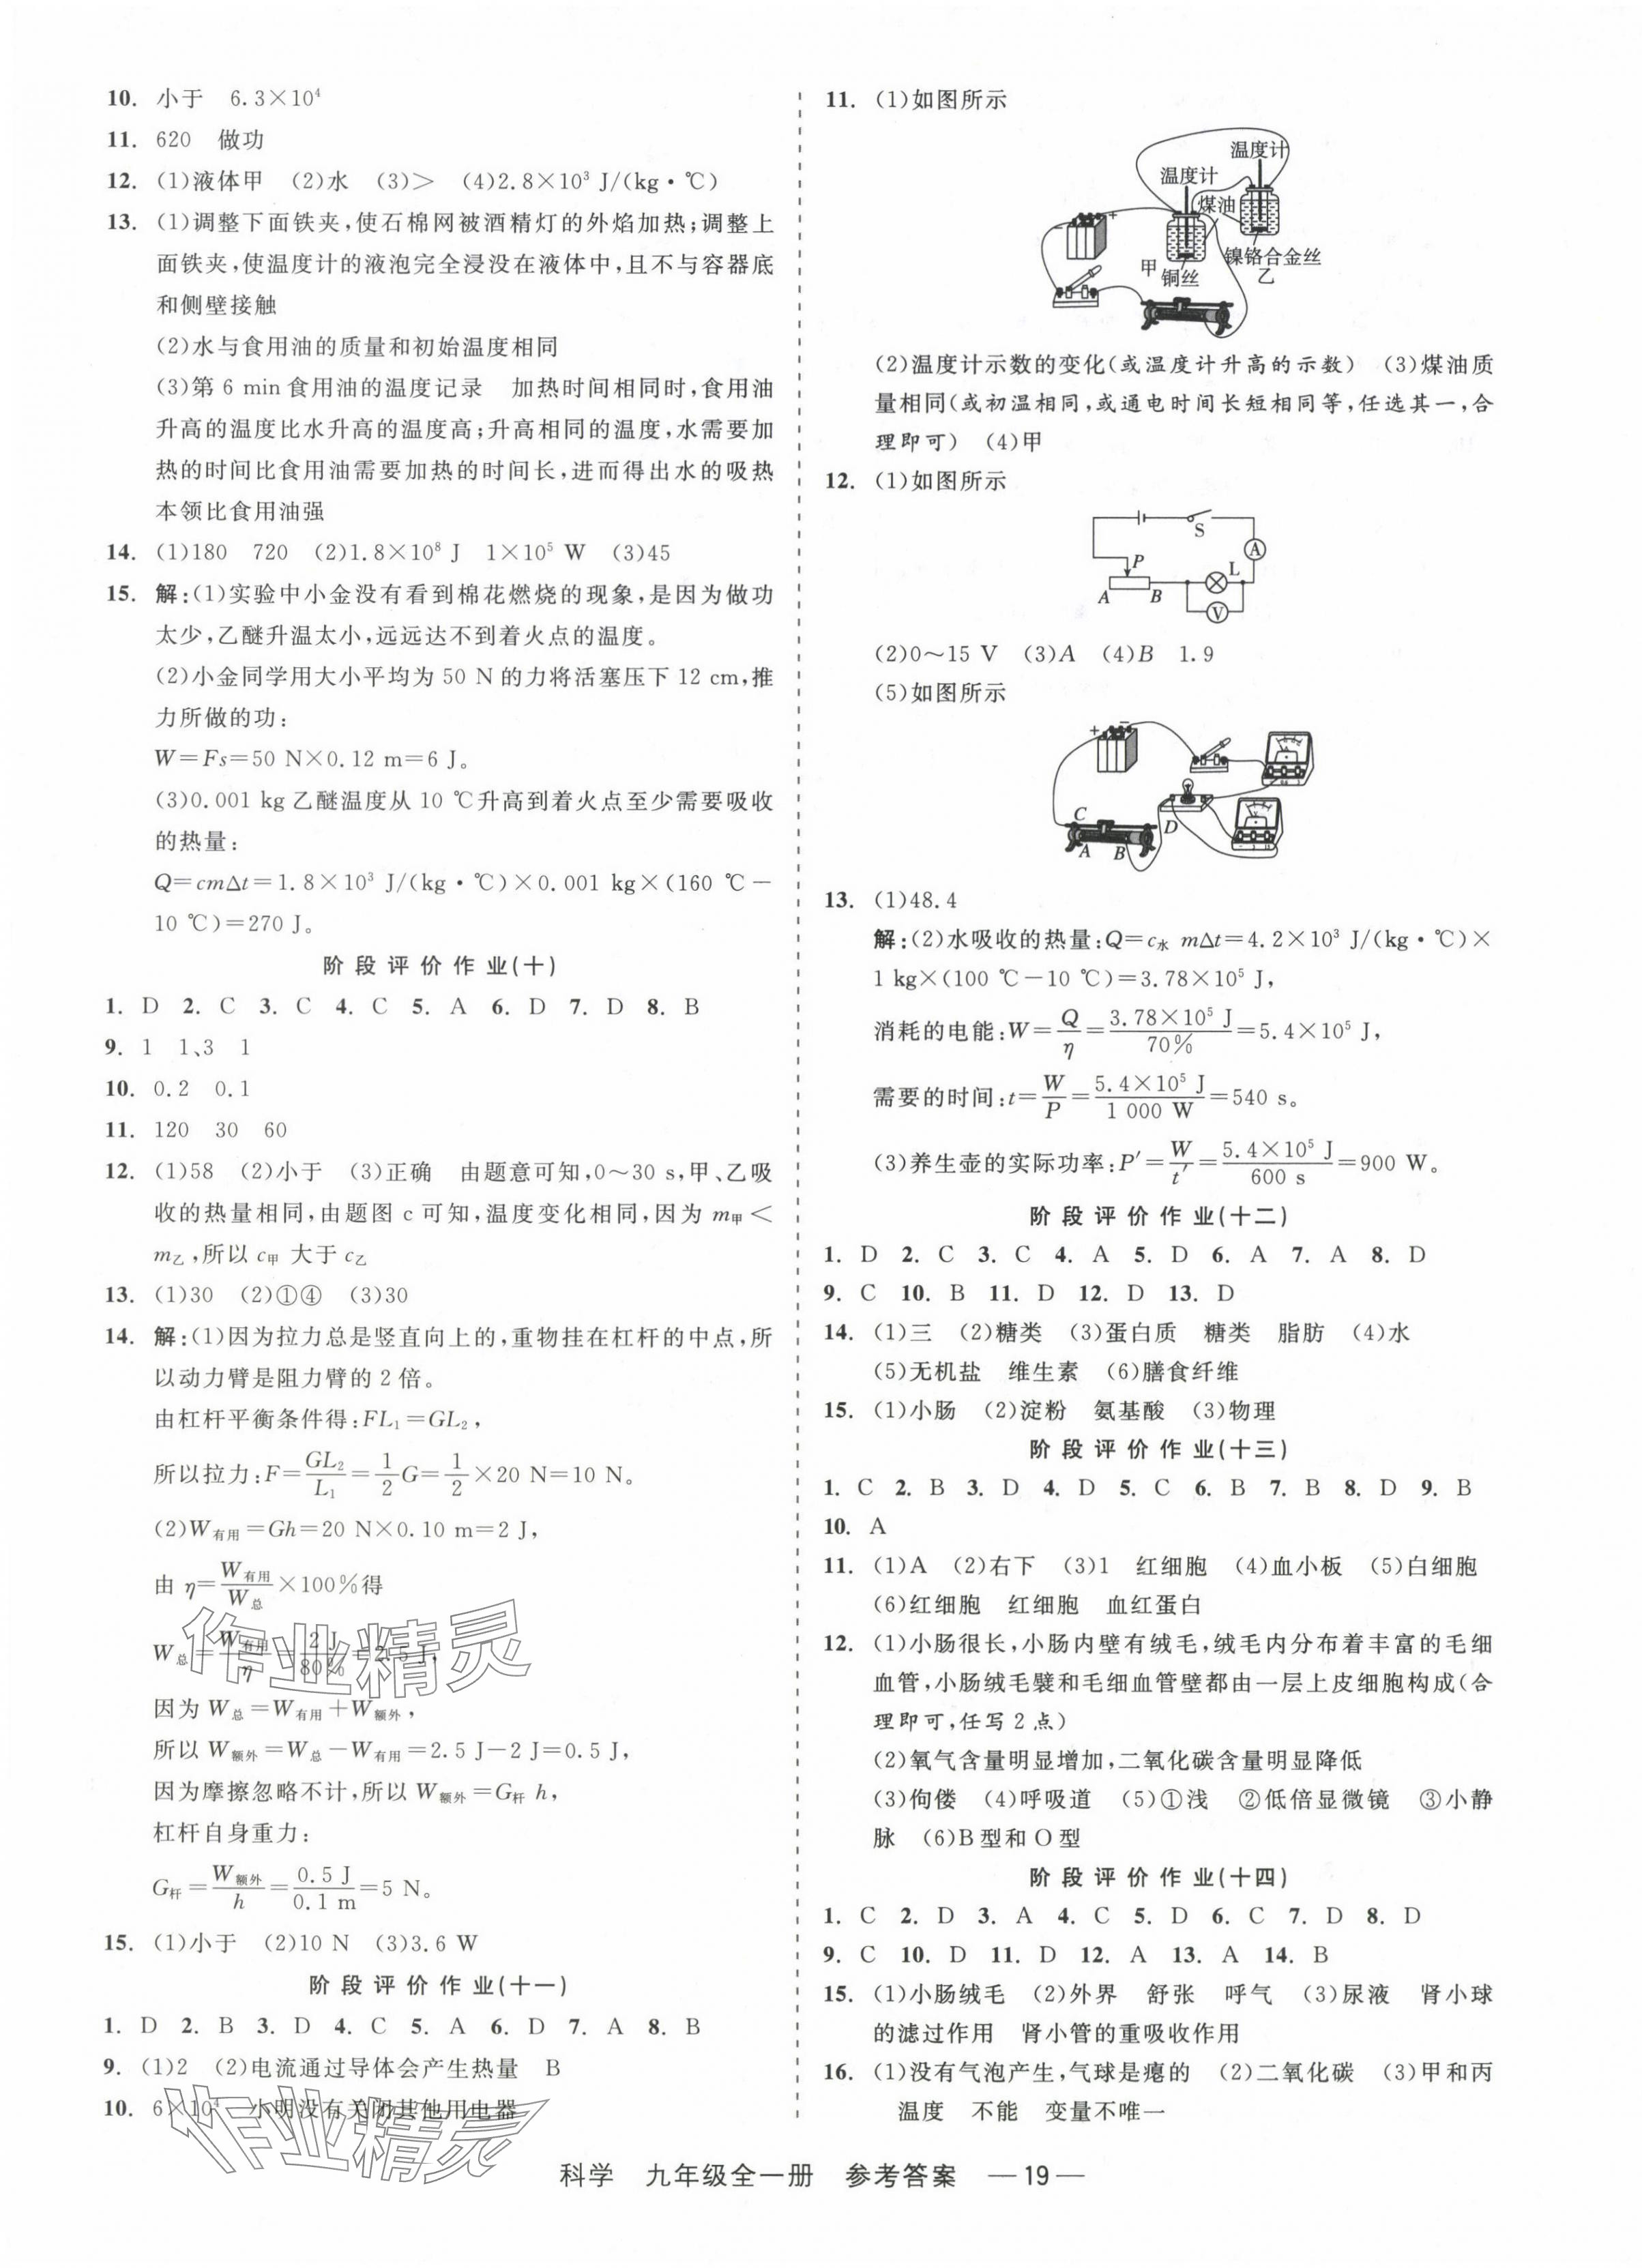 10. 小于　6.3×10⁴
11. 620　做功
12. (1)液体甲　(2)水　(3)>　(4)2.8×10³ J/(kg·℃)
13. (1)调整下面铁夹,使石棉网被酒精灯的外焰加热;调整上
面铁夹,使温度计的液泡完全浸没在液体中,且不与容器底
和侧壁接触
(2)水与食用油的质量和初始温度相同
(3)第 6 min 食用油的温度记录　加热时间相同时,食用油
升高的温度比水升高的温度高;升高相同的温度,水需要加
热的时间比食用油需要加热的时间长,进而得出水的吸热
本领比食用油强
14. (1)180　720　(2)1.8×10⁸ J　1×10⁵ W　(3)45
15. 解:(1)实验中小金没有看到棉花燃烧的现象,是因为做功
太少,乙醚升温太小,远远达不到着火点的温度。
(2)小金同学用大小平均为 50 N 的力将活塞压下 12 cm,推
力所做的功:
W=Fs=50 N×0.12 m=6 J。
(3)0.001 kg 乙醚温度从 10 ℃升高到着火点至少需要吸收
的热量:
Q=cmΔt=1.8×10³ J/(kg·℃)×0.001 kg×(160 ℃-
10 ℃)=270 J。
阶段评价作业(十)
1. D 2. C 3. C 4. C 5. A 6. D 7. D 8. B
9. 1　1、3　1
10. 0.2　0.1
11. 120　30　60
12. (1)58　(2)小于　(3)正确　由题意可知,0~30 s,甲、乙吸
收的热量相同,由题图 c 可知,温度变化相同,因为 m甲<
m乙,所以 c甲 大于 c乙
13. (1)30　(2)①④　(3)30
14. 解:(1)因为拉力总是竖直向上的,重物挂在杠杆的中点,所
以动力臂是阻力臂的 2 倍。
由杠杆平衡条件得:FL₁=GL₂,
所以拉力:F=GL₂/L₁=1/2G=1/2×20 N=10 N。
(2)W有用=Gh=20 N×0.10 m=2 J,
由 η=W有用/W总×100%得
W总=W有用/η=2 J/80%=2.5 J,
因为 W总=W有用+W额外,
所以 W额外=W总-W有用=2.5 J-2 J=0.5 J,
因为摩擦忽略不计,所以 W额外=G杆 h,
杠杆自身重力:
G杆=W额外/h=0.5 J/0.1 m=5 N。
15. (1)小于　(2)10 N　(3)3.6 W
阶段评价作业(十一)
1. D 2. B 3. D 4. C 5. A 6. D 7. A 8. B
9. (1)2　(2)电流通过导体会产生热量　B
10. 6×10⁴　小明没有关闭其他用电器
作业精灵
作业精灵
11. (1)如图所示
温度计
温度计
煤油
+
-
镍铬合金丝
甲
铜丝
乙
(2)温度计示数的变化(或温度计升高的示数)　(3)煤油质
量相同(或初温相同,或通电时间长短相同等,任选其一,合
理即可)　(4)甲
12. (1)如图所示
S
A
P
L
A
B
V
(2)0~15 V　(3)A　(4)B　1.9
(5)如图所示
+
-
C
D
A
B
13. (1)48.4
解:(2)水吸收的热量:Q=c水 mΔt=4.2×10³ J/(kg·℃)×
1 kg×(100 ℃-10 ℃)=3.78×10⁵ J,
消耗的电能:W=Q/η=3.78×10⁵ J/70%=5.4×10⁵ J,
需要的时间:t=W/P=5.4×10⁵ J/1 000 W=540 s。
(3)养生壶的实际功率:P′=W/t′=5.4×10⁵ J/600 s=900 W。
阶段评价作业(十二)
1. D 2. C 3. C 4. A 5. D 6. A 7. A 8. D
9. C 10. B 11. D 12. D 13. D
14. (1)三　(2)糖类　(3)蛋白质　糖类　脂肪　(4)水
(5)无机盐　维生素　(6)膳食纤维
15. (1)小肠　(2)淀粉　氨基酸　(3)物理
阶段评价作业(十三)
1. C 2. B 3. D 4. D 5. C 6. B 7. B 8. D 9. B
10. A
11. (1)A　(2)右下　(3)1　红细胞　(4)血小板　(5)白细胞
(6)红细胞　红细胞　血红蛋白
12. (1)小肠很长,小肠内壁有绒毛,绒毛内分布着丰富的毛细
血管,小肠绒毛襞和毛细血管壁都由一层上皮细胞构成(合
理即可,任写 2 点)
(2)氧气含量明显增加,二氧化碳含量明显降低
(3)佝偻　(4)呼吸道　(5)①浅　②低倍显微镜　③小静
脉　(6)B 型和 O 型
阶段评价作业(十四)
1. C 2. D 3. A 4. C 5. D 6. C 7. D 8. D
9. C 10. D 11. D 12. A 13. A 14. B
15. (1)小肠绒毛　(2)外界　舒张　呼气　(3)尿液　肾小球
的滤过作用　肾小管的重吸收作用
16. (1)没有气泡产生,气球是瘪的　(2)二氧化碳　(3)甲和丙
温度　不能　变量不唯一
科学　九年级全一册　参考答案　—19—